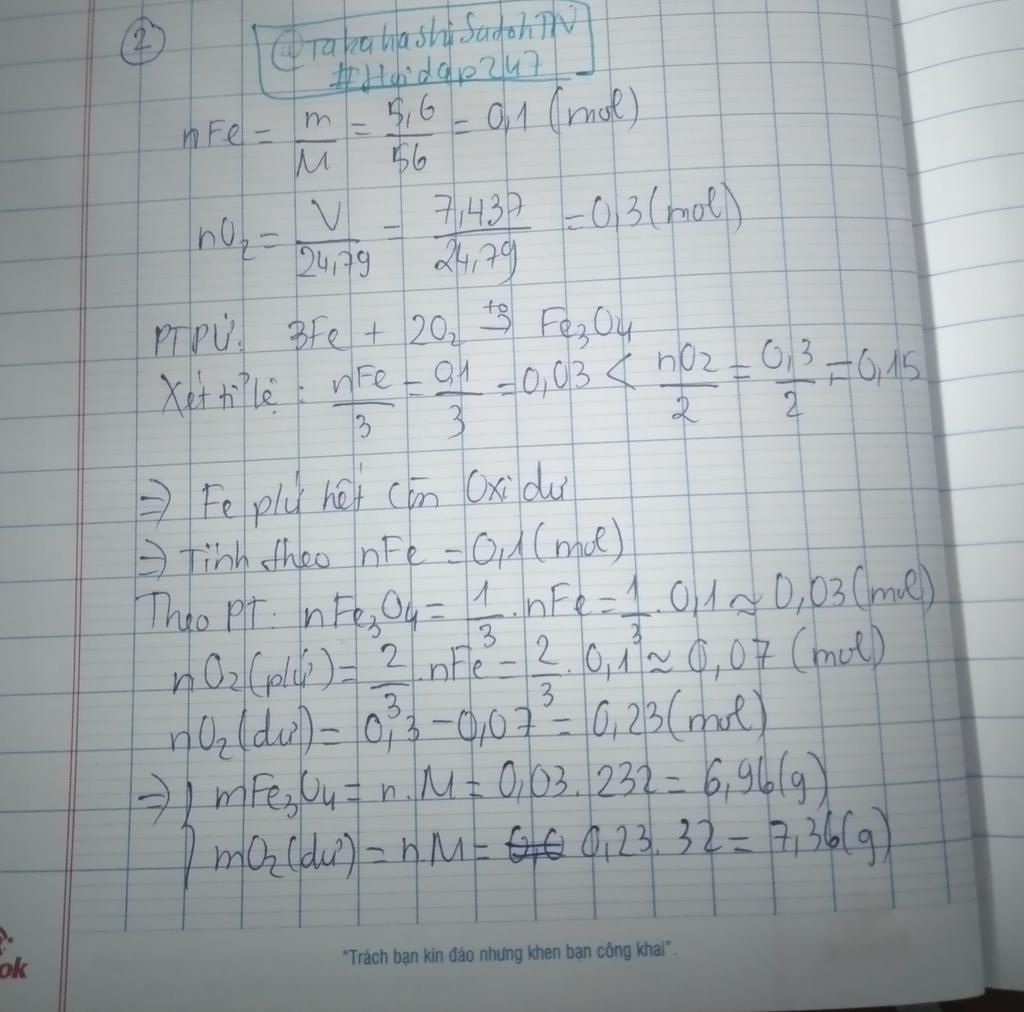 ②
@TakahashiSadohTN
#Hoidap247
nFe = m/M = 5,6/56 = 0,1 (mol)
nO₂ = V/24,79 = 7,437/24,79 = 0,3 (mol)
PTPƯ: 3Fe + 2O₂ t°→ Fe₃O₄
Xét tỉ lệ: nFe/3 = 0,1/3 = 0,03 < nO₂/2 = 0,3/2 = 0,15
=> Fe pư hết còn Oxi dư
=> Tính theo nFe = 0,1 (mol)
Theo PT: nFe₃O₄ = 1/3 . nFe = 1/3 . 0,1 ≈ 0,03 (mol)
nO₂ (pư) = 2/3 . nFe = 2/3 . 0,1 ≈ 0,07 (mol)
nO₂ (dư) = 0,3 - 0,07 = 0,23 (mol)
=> { mFe₃O₄ = n.M = 0,03 . 232 = 6,96 (g)
mO₂ (dư) = n.M = 0,23 . 32 = 7,36 (g)
"Trách bạn kín đáo nhưng khen bạn công khai".
ok